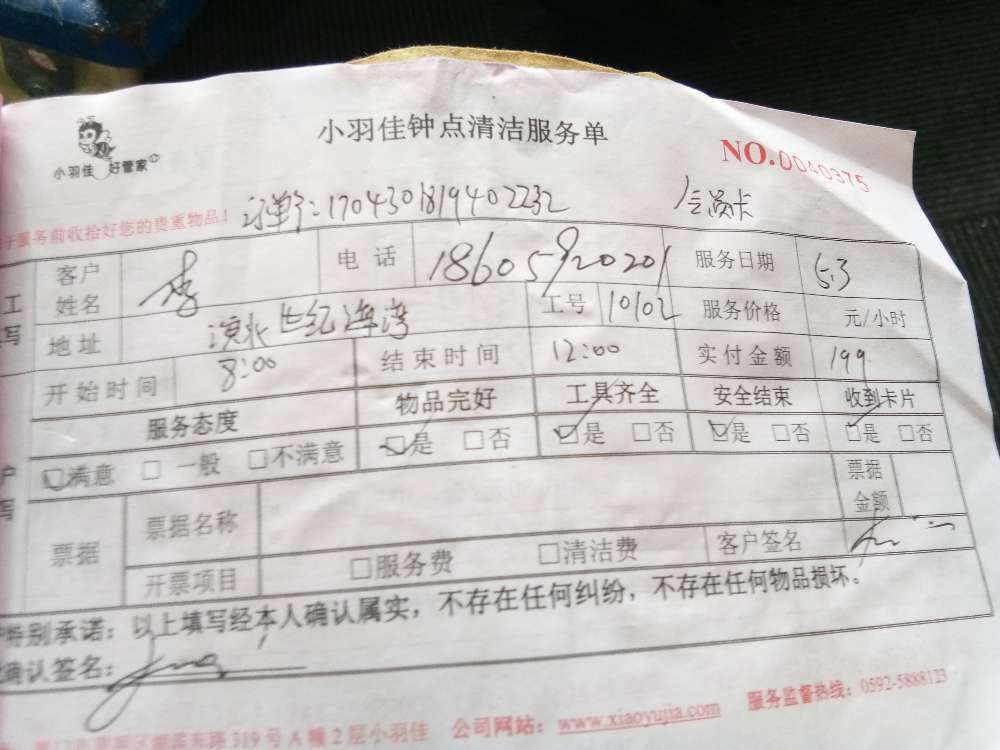 小羽佳钟点清洁服务单
小羽佳 好管家
NO.0040375
于服务前收拾好您的贵重物品！
订单号：1704301819402232 会员卡
客户姓名 李 电话 18605920201 服务日期 5.3
地址 滨北世纪海湾 工号 10102 服务价格 元/小时
开始时间 8:00 结束时间 12:00 实付金额 199
服务态度 物品完好 工具齐全 安全结束 收到卡片
☑满意 □一般 □不满意 ☑是 □否 ☑是 □否 ☑是 □否 ☑是 □否
票据 票据名称 票据金额
开票项目 □服务费 □清洁费 客户签名
特别承诺：以上填写经本人确认属实，不存在任何纠纷，不存在任何物品损坏。
确认签名：
东路319号A幢2层小羽佳 公司网站：www.xiaoyujia.com 服务监督热线：0592-5888123